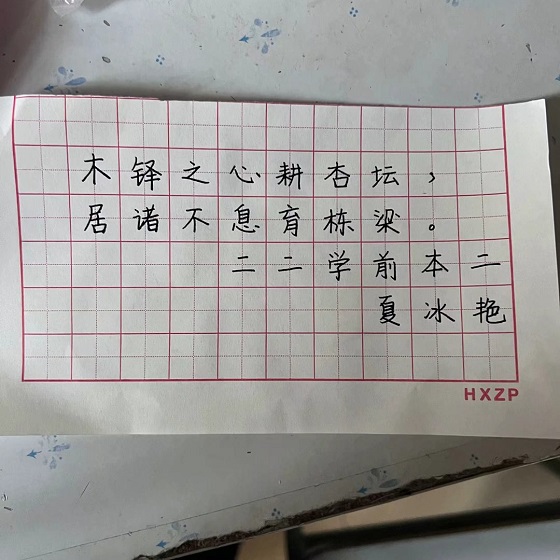 木铎之心耕杏坛，
居诸不息育栋梁。
二二学前本二
夏冰艳
HXZP